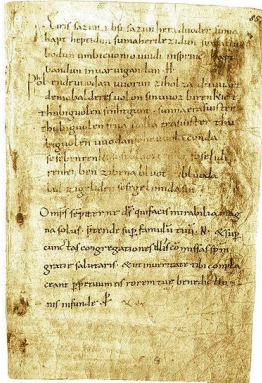 Eiris sazun idisi sazun hera duoder suma
hapt heptidun suma heri lezidun suma clu
bodun umbi cuonio uuidi insprinc hapt
bandun inuar uigandun · H ·
Phol endeuuodan uuorun zi holza du uuart
demo balderes uolon sin uuoz birenkict
thu biguolen sinhtgunt · sunna era suister
thu biguolen friia uolla era suister thu
biguolen uuodan conda
sose benrenki soselidi
renki ben zi bena bluot zi bluoda
lid zi geliden sose gelimida sin
Omps sempiterne ds qui facis mirabilia mag
na solus · ptende sup famulu tuu · N · & sup
cunctas congregationes illi comissas spm
gratie salutaris · & ut in ueritate tibi compla
ceant ppetuum eis rorem tue benedictio
nis infunde · p